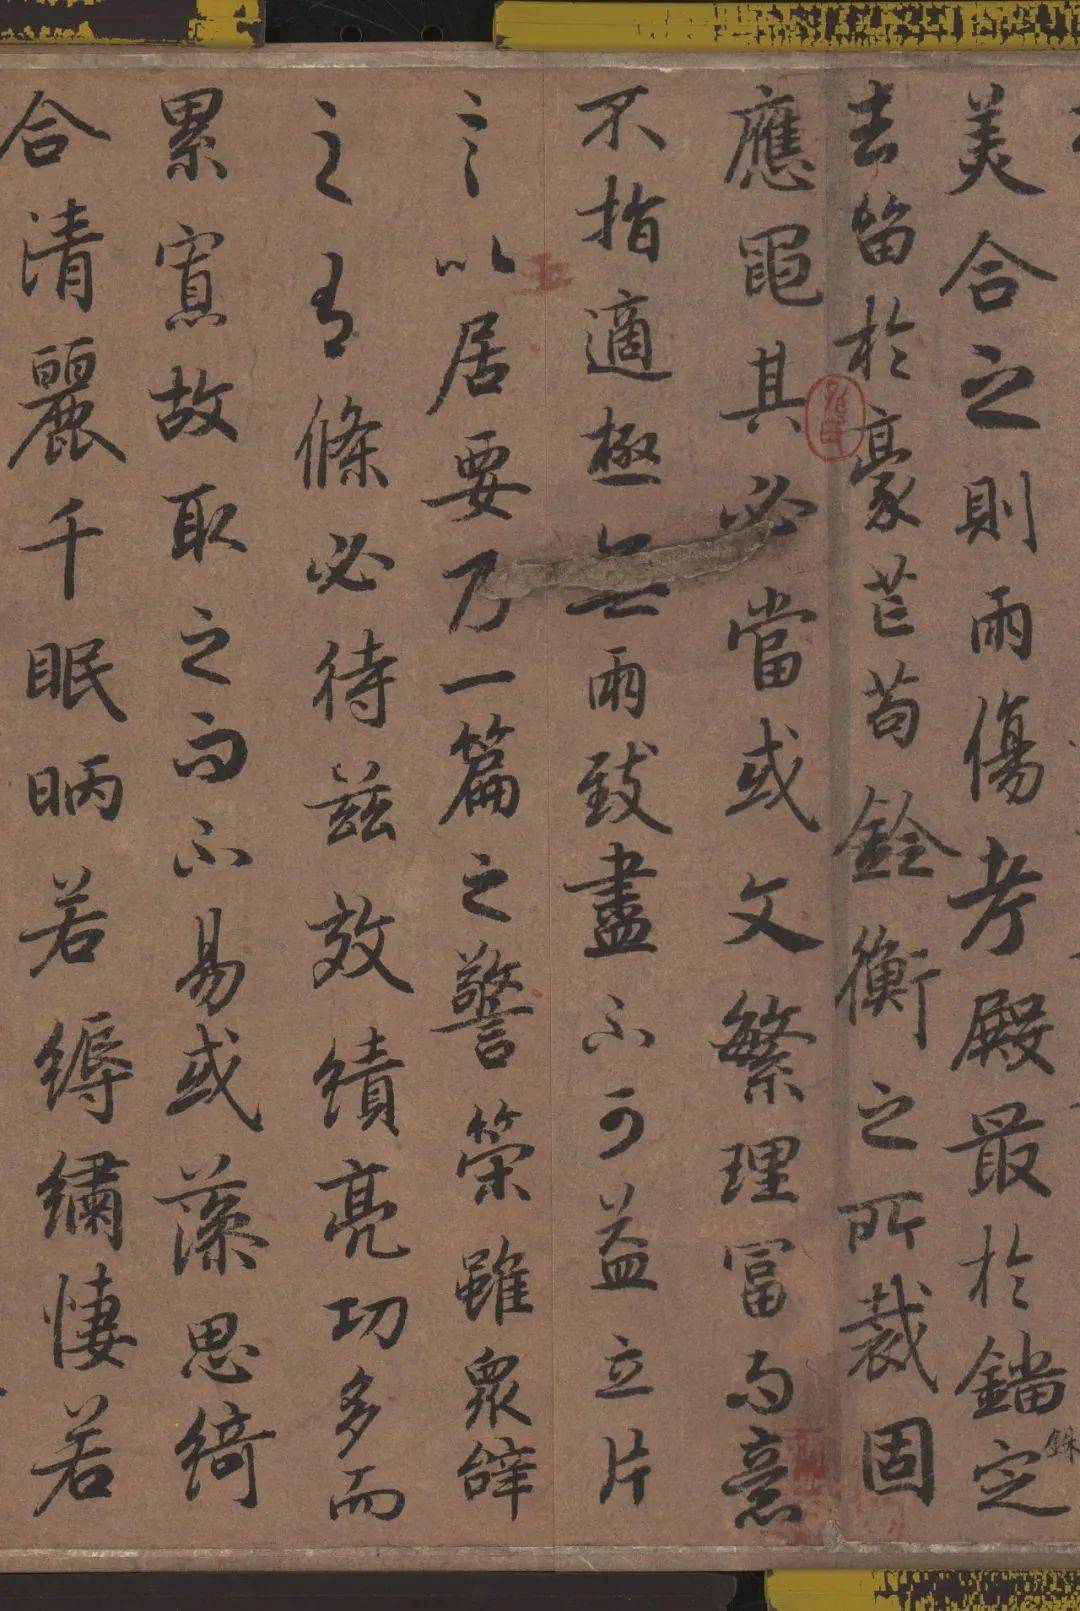 美合之則兩傷考殿最於錙定
銖
去留於豪芒苟銓衡之所裁固
應繩其必當或文繁理富而意
不指適極無兩致盡不可益立片
言以居要乃一篇之警策雖眾辭
之有條必待茲效績亮功多而
累寡故取之而不易或藻思綺
合清麗千眠昞若縟繡悽若